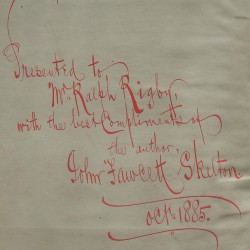 Presented to
Mr. Ralph Rigby,
with the best Compliments of
the author,
John Fawcett Skelton
Octr. 1885.